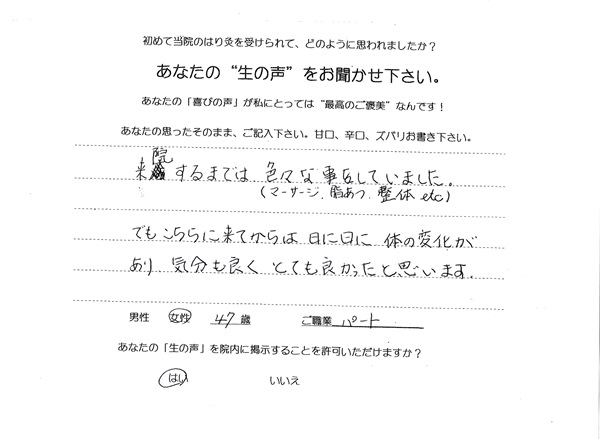 初めて当院のはり灸を受けられて、どのように思われましたか？
あなたの“生の声”をお聞かせ下さい。
あなたの「喜びの声」が私にとっては“最高のご褒美”なんです！
あなたの思ったそのまま、ご記入下さい。甘口、辛口、ズバリお書き下さい。
来院するまでは 色々な事をしていました。
(マーサージ、脂あつ、整体 etc)
でもこちらに来てからは 日に日に 体の変化が
あり 気分も良く とても良かったと思います。
男性 女性 47歳 ご職業 パート
あなたの「生の声」を院内に掲示することを許可いただけますか？
はい いいえ